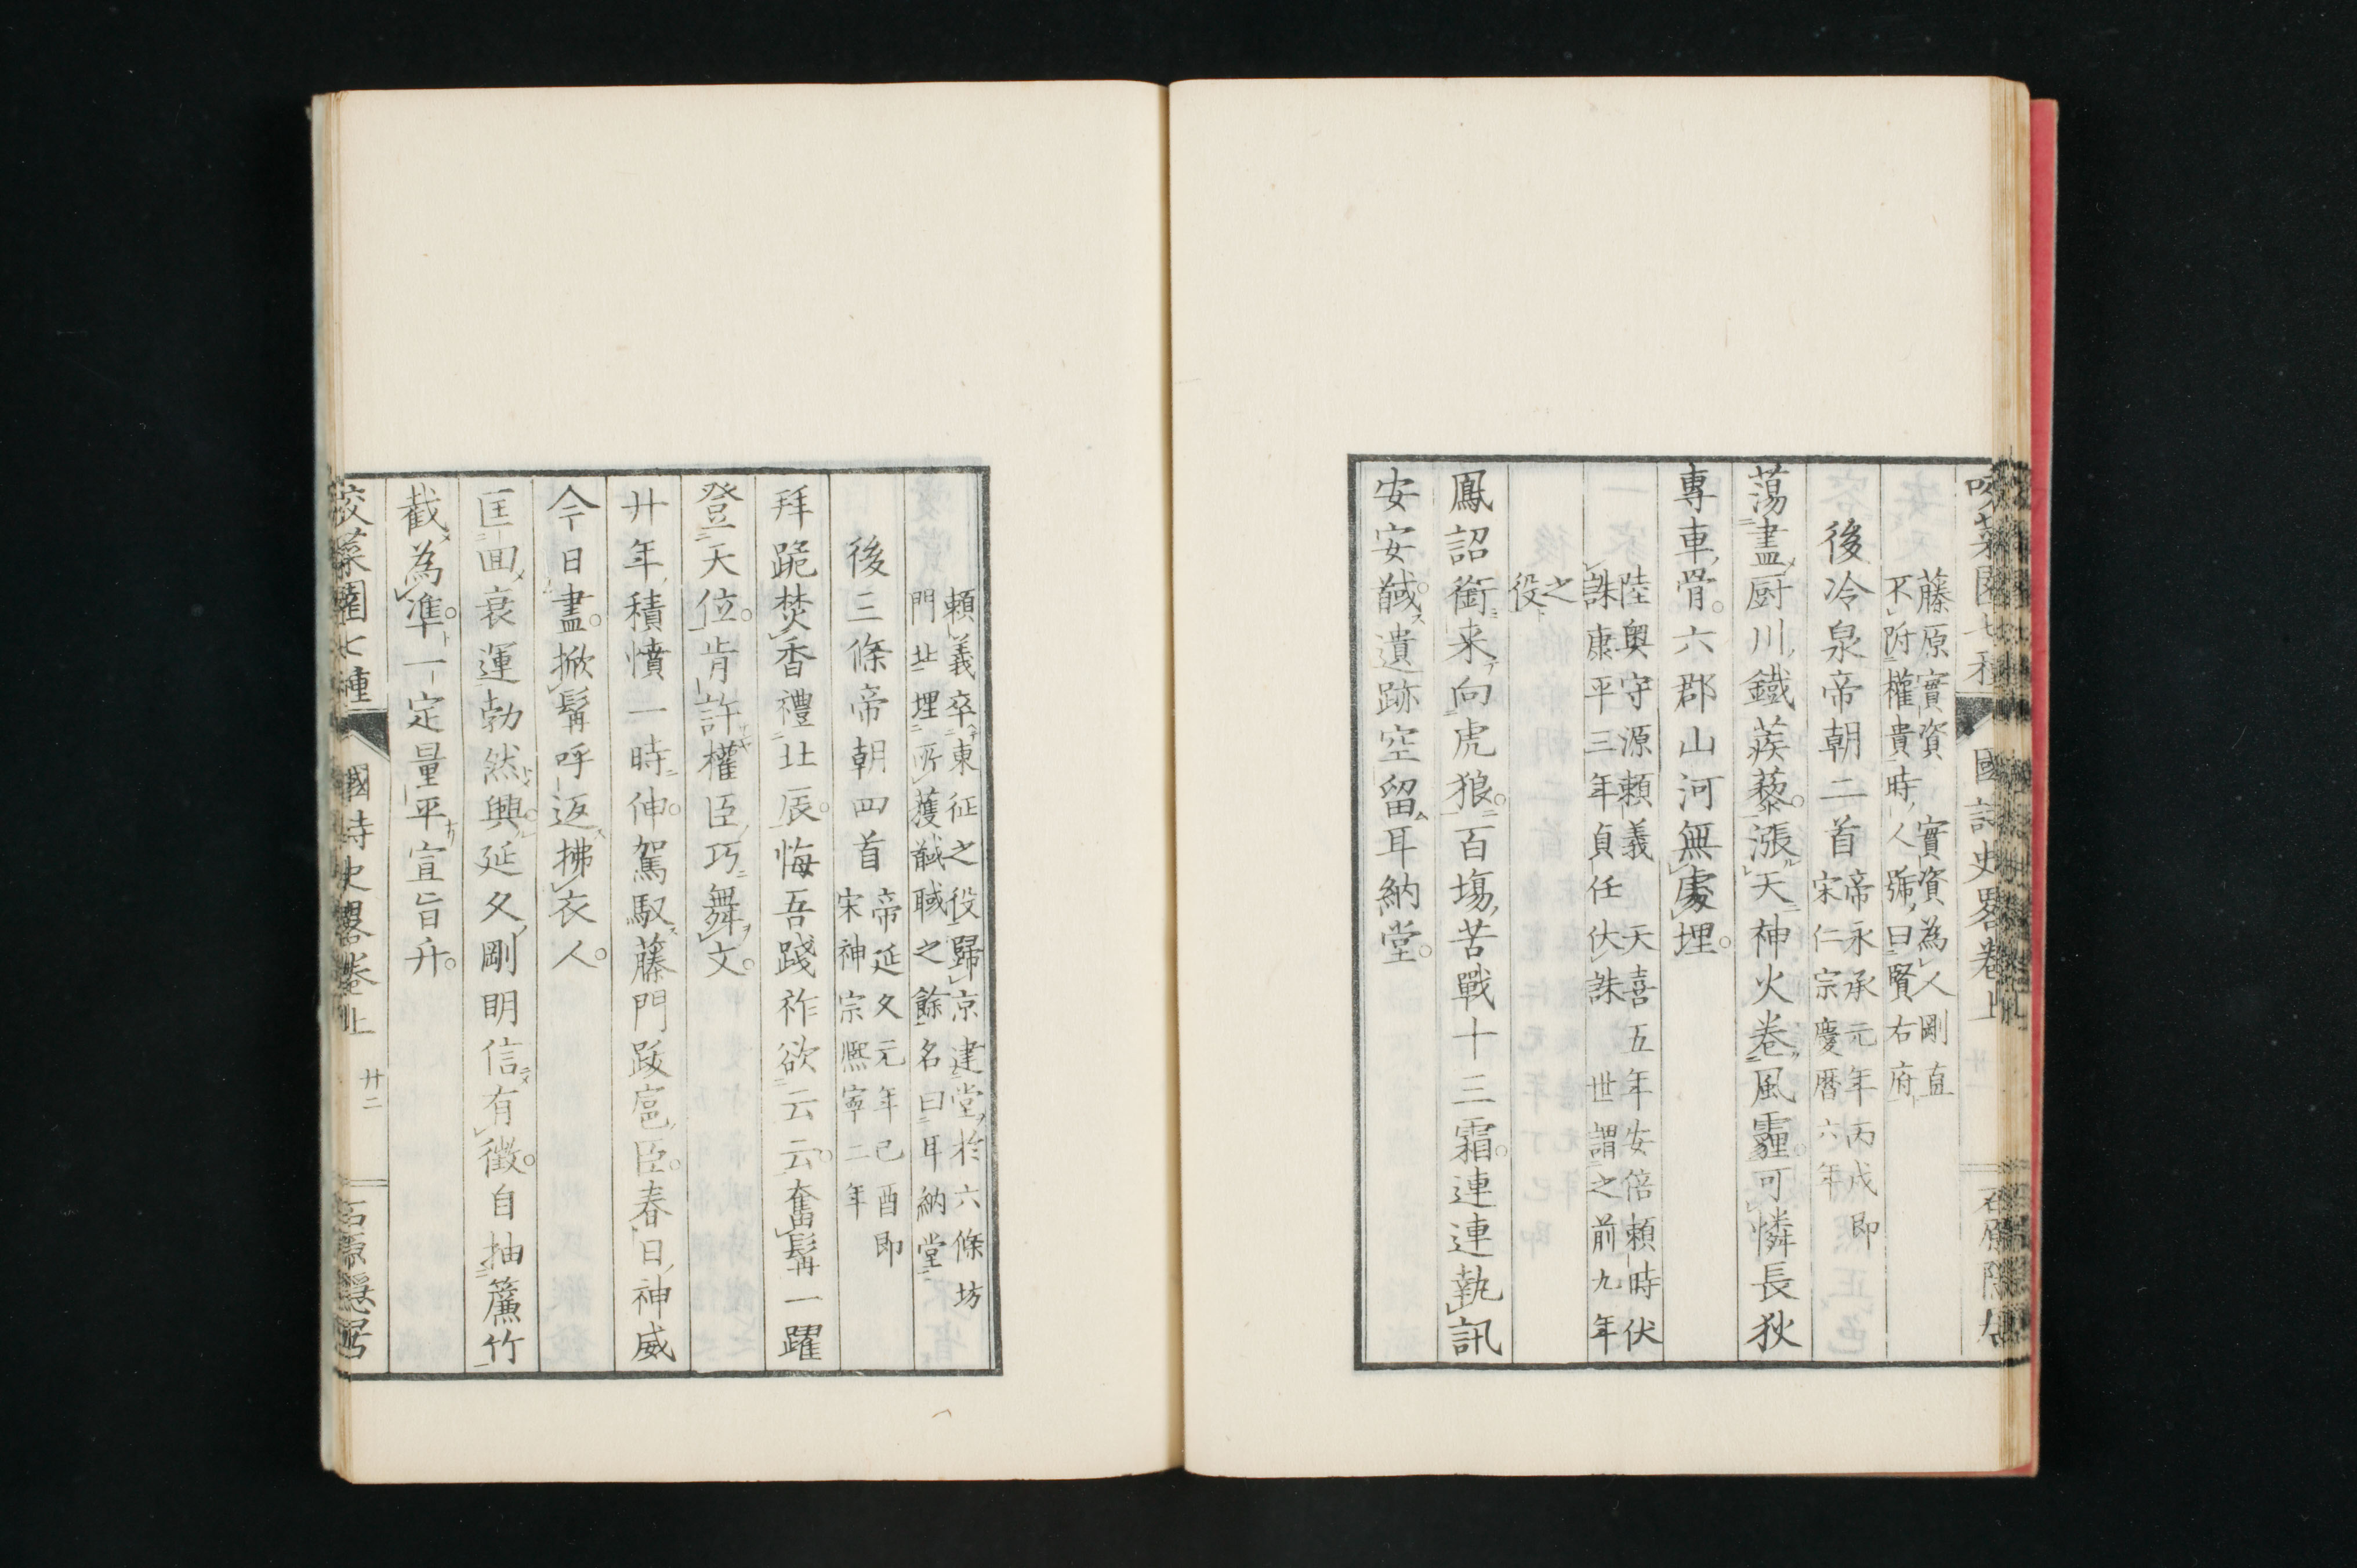 咬菜園七種 國詩史畧卷上 石原隱居
藤原實資 實資為人剛直
不附權貴時人號曰賢右府
後冷泉帝朝二首 帝永承元年丙戌即
宋仁宗慶曆六年
蕩盡厨川鐵蒺藜。漲天神火卷風霾。可憐長狄
專車骨。六郡山河無處埋。
陸奥守源頼義 天喜五年安倍頼時伏
誅康平三年貞任伏誅 世謂之前九年
之
役
鳳詔銜来向虎狼。百塲苦戰十三霜。連連執訊
安安馘。遺跡空留耳納堂。
頼義卒東征之役歸京建堂於六條坊
門北埋所獲馘聝之餘名曰耳納堂
後三條帝朝四首 帝延久元年己酉即
宋神宗熈寧二年
拜跪焚香禮北辰。悔吾踐祚欲云云。奮髯一躍
登天位。肯許權臣巧舞文。
廾年積憤一時伸。駕馭藤門跋扈臣。春日神威
今日盡。掀髯呼返拂衣人。
匡回衰運勃然興。延久剛明信有徵。自抽簾竹
截為準。一定量平宣旨升。
咬菜園七種 國詩史畧卷上 廾二 石原隱居